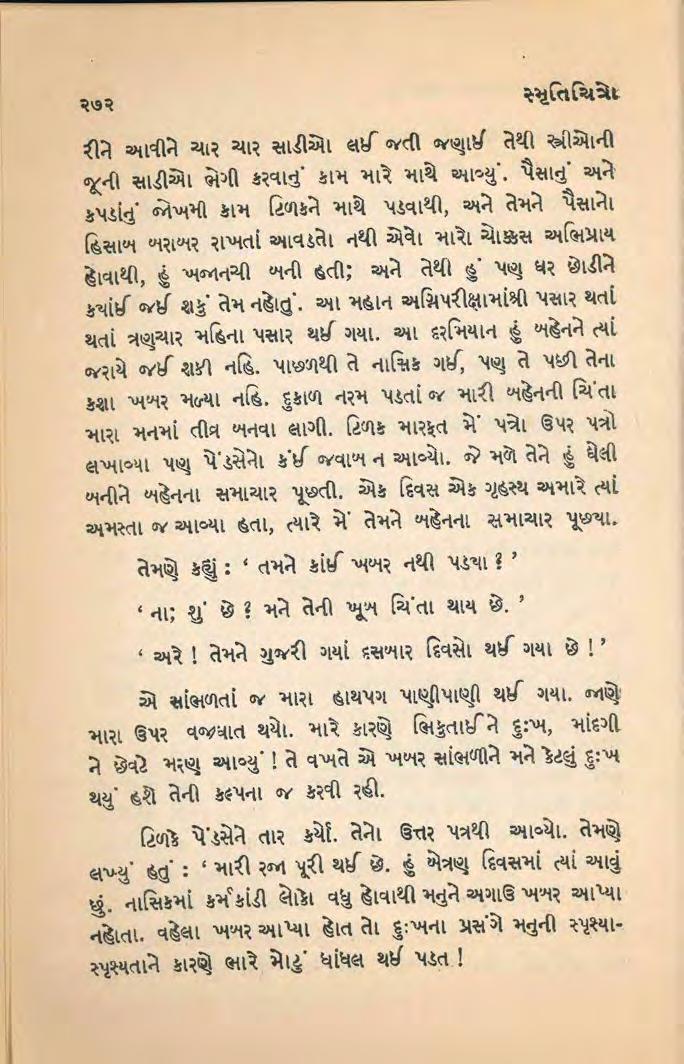 ૨૭૨
સ્મૃતિચિત્રો
રીને આવીને ચાર ચાર સાડીઓ લઈ જતી જણાઈ તેથી સ્ત્રીઓની
જૂની સાડીઓ ભેગી કરવાનું કામ મારે માથે આવ્યું. પૈસાનું અને
કપડાંનું જોખમી કામ ટિળકને માથે પડવાથી, અને તેમને પૈસાનો
હિસાબ બરાબર રાખતાં આવડતો નથી એવો મારો ચોક્કસ અભિપ્રાય
હોવાથી, હું ખજાનચી બની હતી; અને તેથી હું પણ ઘર છોડીને
કયાંઈ જઈ શકું તેમ નહોતું. આ મહાન અગ્નિપરીક્ષામાંથી પસાર થતાં
થતાં ત્રણચાર મહિના પસાર થઈ ગયા. આ દરમિયાન હું બહેનને ત્યાં
જરાયે જઈ શકી નહિ. પાછળથી તે નાસિક ગઈ, પણ તે પછી તેના
કશા ખબર મળ્યા નહિ. દુકાળ નરમ પડતાં જ મારી બહેનની ચિંતા
મારા મનમાં તીવ્ર બનવા લાગી. ટિળક મારફત મેં પત્રો ઉપર પત્રો
લખાવ્યા પણ પેંડસેનો કંઈ જવાબ ન આવ્યો. જે મળે તેને હું ઘેલી
બનીને બહેનના સમાચાર પૂછતી. એક દિવસ એક ગૃહસ્થ અમારે ત્યાં
અમસ્તા જ આવ્યા હતા, ત્યારે મેં તેમને બહેનના સમાચાર પૂછયા.
તેમણે કહ્યું : ‘ તમને કાંઈ ખબર નથી પડયા ? ’
‘ ના; શું છે ? મને તેની ખૂબ ચિંતા થાય છે. ’
‘ અરે ! તેમને ગુજરી ગયાં દસબાર દિવસો થઈ ગયા છે ! ’
એ સાંભળતાં જ મારા હાથપગ પાણીપાણી થઈ ગયા. જાણે
મારા ઉપર વજાઘાત થયો. મારે કારણે ભિકુતાઈને દુઃખ, માંદગી
ને છેવટે મરણ આવ્યું ! તે વખતે એ ખબર સાંભળીને મને કેટલું દુઃખ
થયું હશે તેની કલ્પના જ કરવી રહી.
ટિળકે પેંડસેને તાર કર્યો. તેનો ઉત્તર પત્રથી આવ્યો. તેમણે
લખ્યું હતું : ‘ મારી રજા પૂરી થઈ છે. હું બેત્રણ દિવસમાં ત્યાં આવું
છું. નાસિકમાં કર્મકાંડી લોકો વધુ હોવાથી મનુને અગાઉ ખબર આપ્યા
નહોતા. વહેલા ખબર આપ્યા હોત તો દુઃખના પ્રસંગે મનુની સ્પૃશ્યા-
સ્પૃશ્યતાને કારણે ભારે મોટું ધાંધલ થઈ પડત !